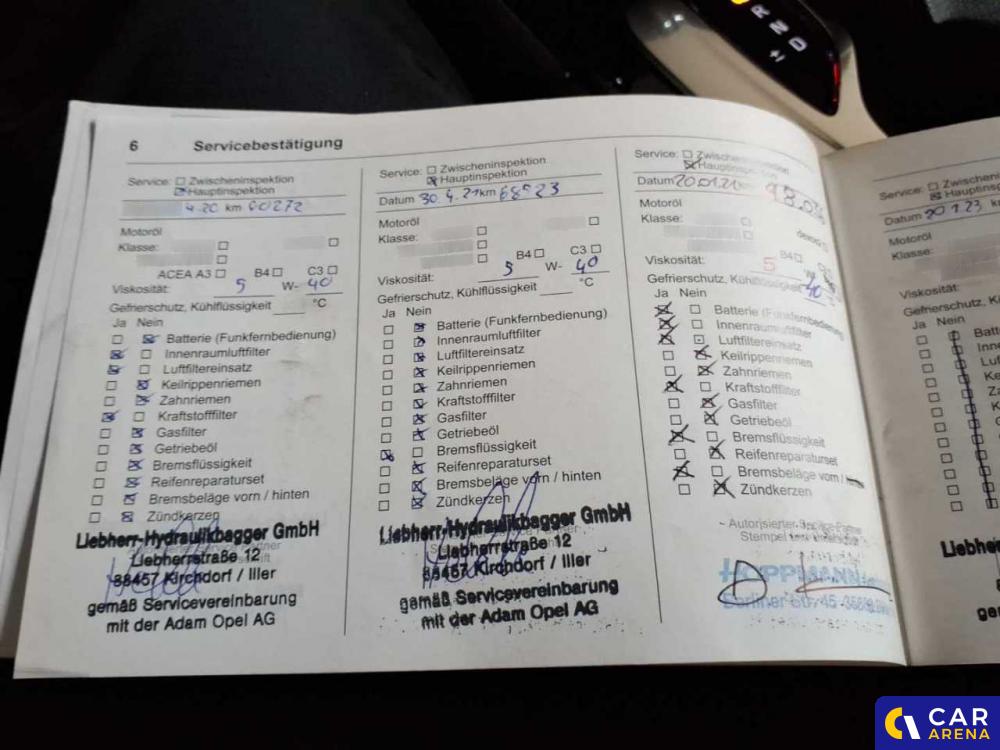 R
N
D
+/-
6 Servicebestätigung
Service: Zwischeninspektion
Hauptinspektion
4.20 km 60272
Motoröl
Klasse:
ACEA A3 B4 C3
Viskosität: 5 W- 40
Gefrierschutz, Kühlflüssigkeit °C
Ja Nein
Batterie (Funkfernbedienung)
Innenraumluftfilter
Luftfiltereinsatz
Keilrippenriemen
Zahnriemen
Kraftstofffilter
Gasfilter
Getriebeöl
Bremsflüssigkeit
Reifenreparaturset
Bremsbeläge vorn / hinten
Zündkerzen
Liebherr-Hydraulikbagger GmbH
Liebherrstraße 12
88457 Kirchdorf / Iller
gemäß Servicevereinbarung
mit der Adam Opel AG
Service: Zwischeninspektion
Hauptinspektion
Datum 30.4.21 km 68523
Motoröl
Klasse:
B4 C3
Viskosität: 5 W- 40
Gefrierschutz, Kühlflüssigkeit °C
Ja Nein
Batterie (Funkfernbedienung)
Innenraumluftfilter
Luftfiltereinsatz
Keilrippenriemen
Zahnriemen
Kraftstofffilter
Gasfilter
Getriebeöl
Bremsflüssigkeit
Reifenreparaturset
Bremsbeläge vorn / hinten
Zündkerzen
Liebherr-Hydraulikbagger GmbH
Liebherrstraße 12
88457 Kirchdorf / Iller
gemäß Servicevereinbarung
mit der Adam Opel AG
Service: Zwischeninspektion
Hauptinspektion
Datum
Motoröl
Klasse:
dexos
B4
Viskosität: 5 W 40
Gefrierschutz, Kühlflüssigkeit
Ja Nein
Batterie (Funkfernbedienung)
Innenraumluftfilter
Luftfiltereinsatz
Keilrippenriemen
Zahnriemen
Kraftstofffilter
Gasfilter
Getriebeöl
Bremsflüssigkeit
Reifenreparaturset
Bremsbeläge vorn /
Zündkerzen
Autorisierter Service-Partner
Stempel
HOPPMANN
Berliner
Service: Zwischeninsp
Hauptinspektion
Datum 1.23 km
Motoröl
Klasse:
Viskosität:
Gefrierschutz, K
Ja Nein
Batt
Inne
Luf
Ke
Za
Liebhe
ge
CAR
ARENA